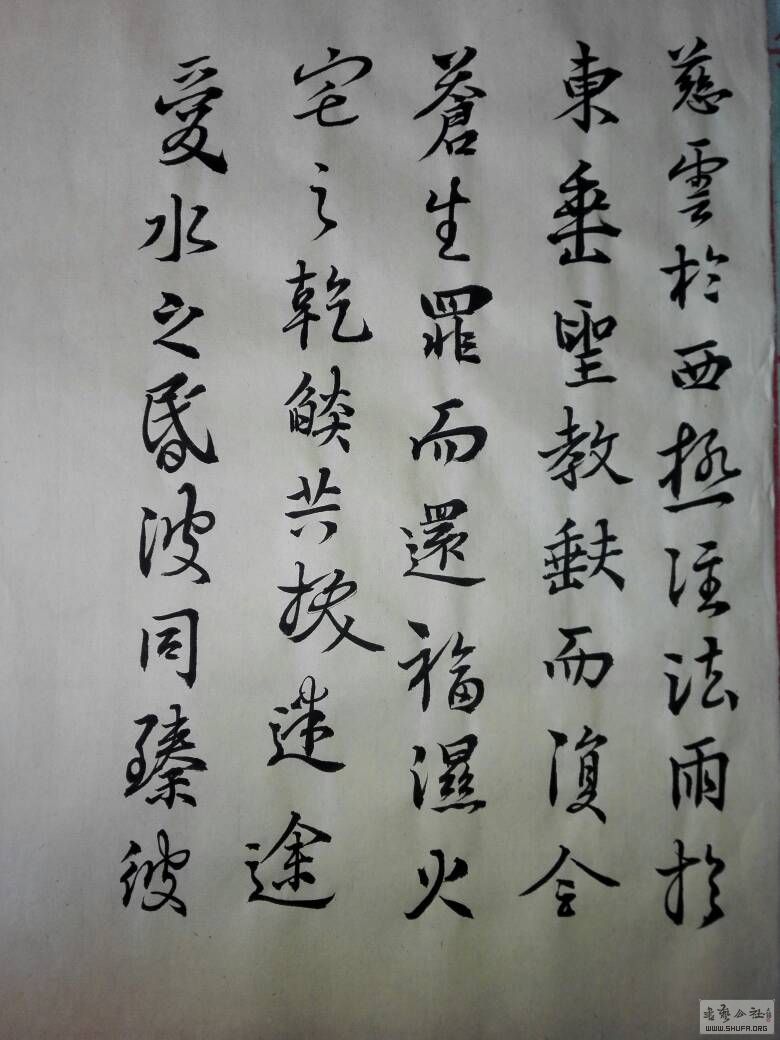 慈雲於西極注法雨於
東垂聖教缺而復全
蒼生罪而還福濕火
宅之乾燄共拔迷途
愛水之昏波同臻彼
书艺公社
WWW.SHUFA.ORG